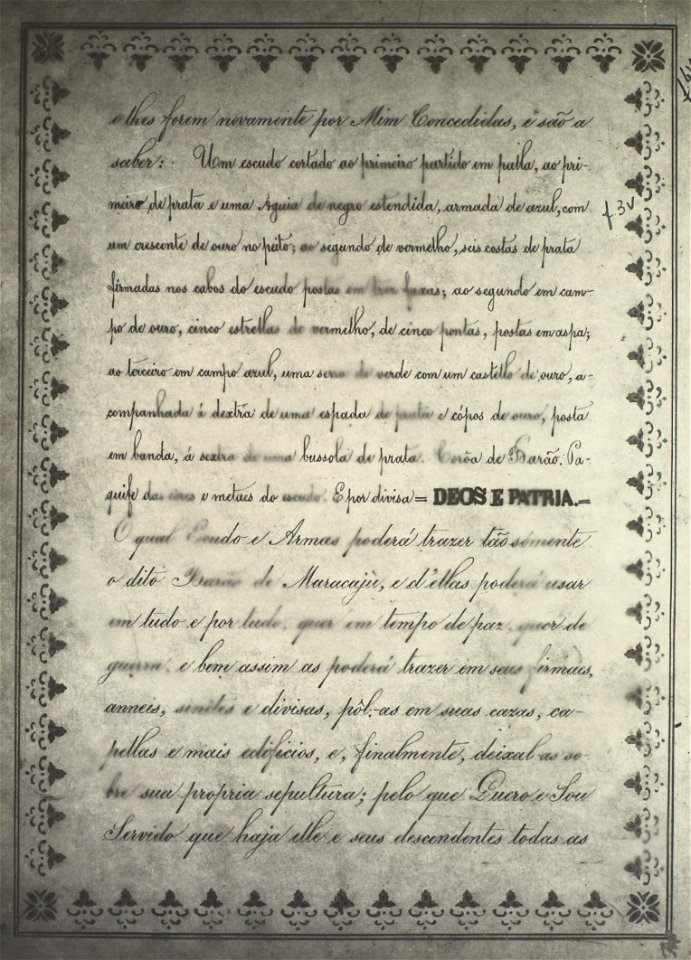 e lhes forem novamente por Mim Concedidas, e são a
saber: Um escudo cortado ao primeiro partido em palla, ao pri-
meiro, de prata e uma Aguia de negro estendida, armada de azul, com
um crescente de ouro no peito; ao segundo de vermelho, seis costas de prata
firmadas nos cabos do escudo postas em tres faxas; ao segundo em cam-
po de ouro, cinco estrellas de vermelho, de cinco pontas, postas em aspa;
ao terceiro em campo azul, uma serra de verde com um castello de ouro, a-
companhada á dextra de uma espada de prata e cópos de ouro, posta
em banda, á sextra de uma bussola de prata. Corôa de Barão. Pa-
quife das cores e metaes do escudo. E por divisa = DEOS E PATRIA. =
O qual Escudo e Armas poderá trazer tão sómente
o dito Barão de Maracajù, e d'ellas poderá usar
em tudo e por tudo, quer em tempo de paz, quer de
guerra, e bem assim as poderá trazer em seus firmaes,
anneis, sinetes e divisas, pôl-as em suas cazas, ca-
pellas e mais edificios, e, finalmente, deixal-as so-
bre sua propria sepultura; pelo que Quero e Sou
Servido que haja elle e seus descendentes todas as
f 3v